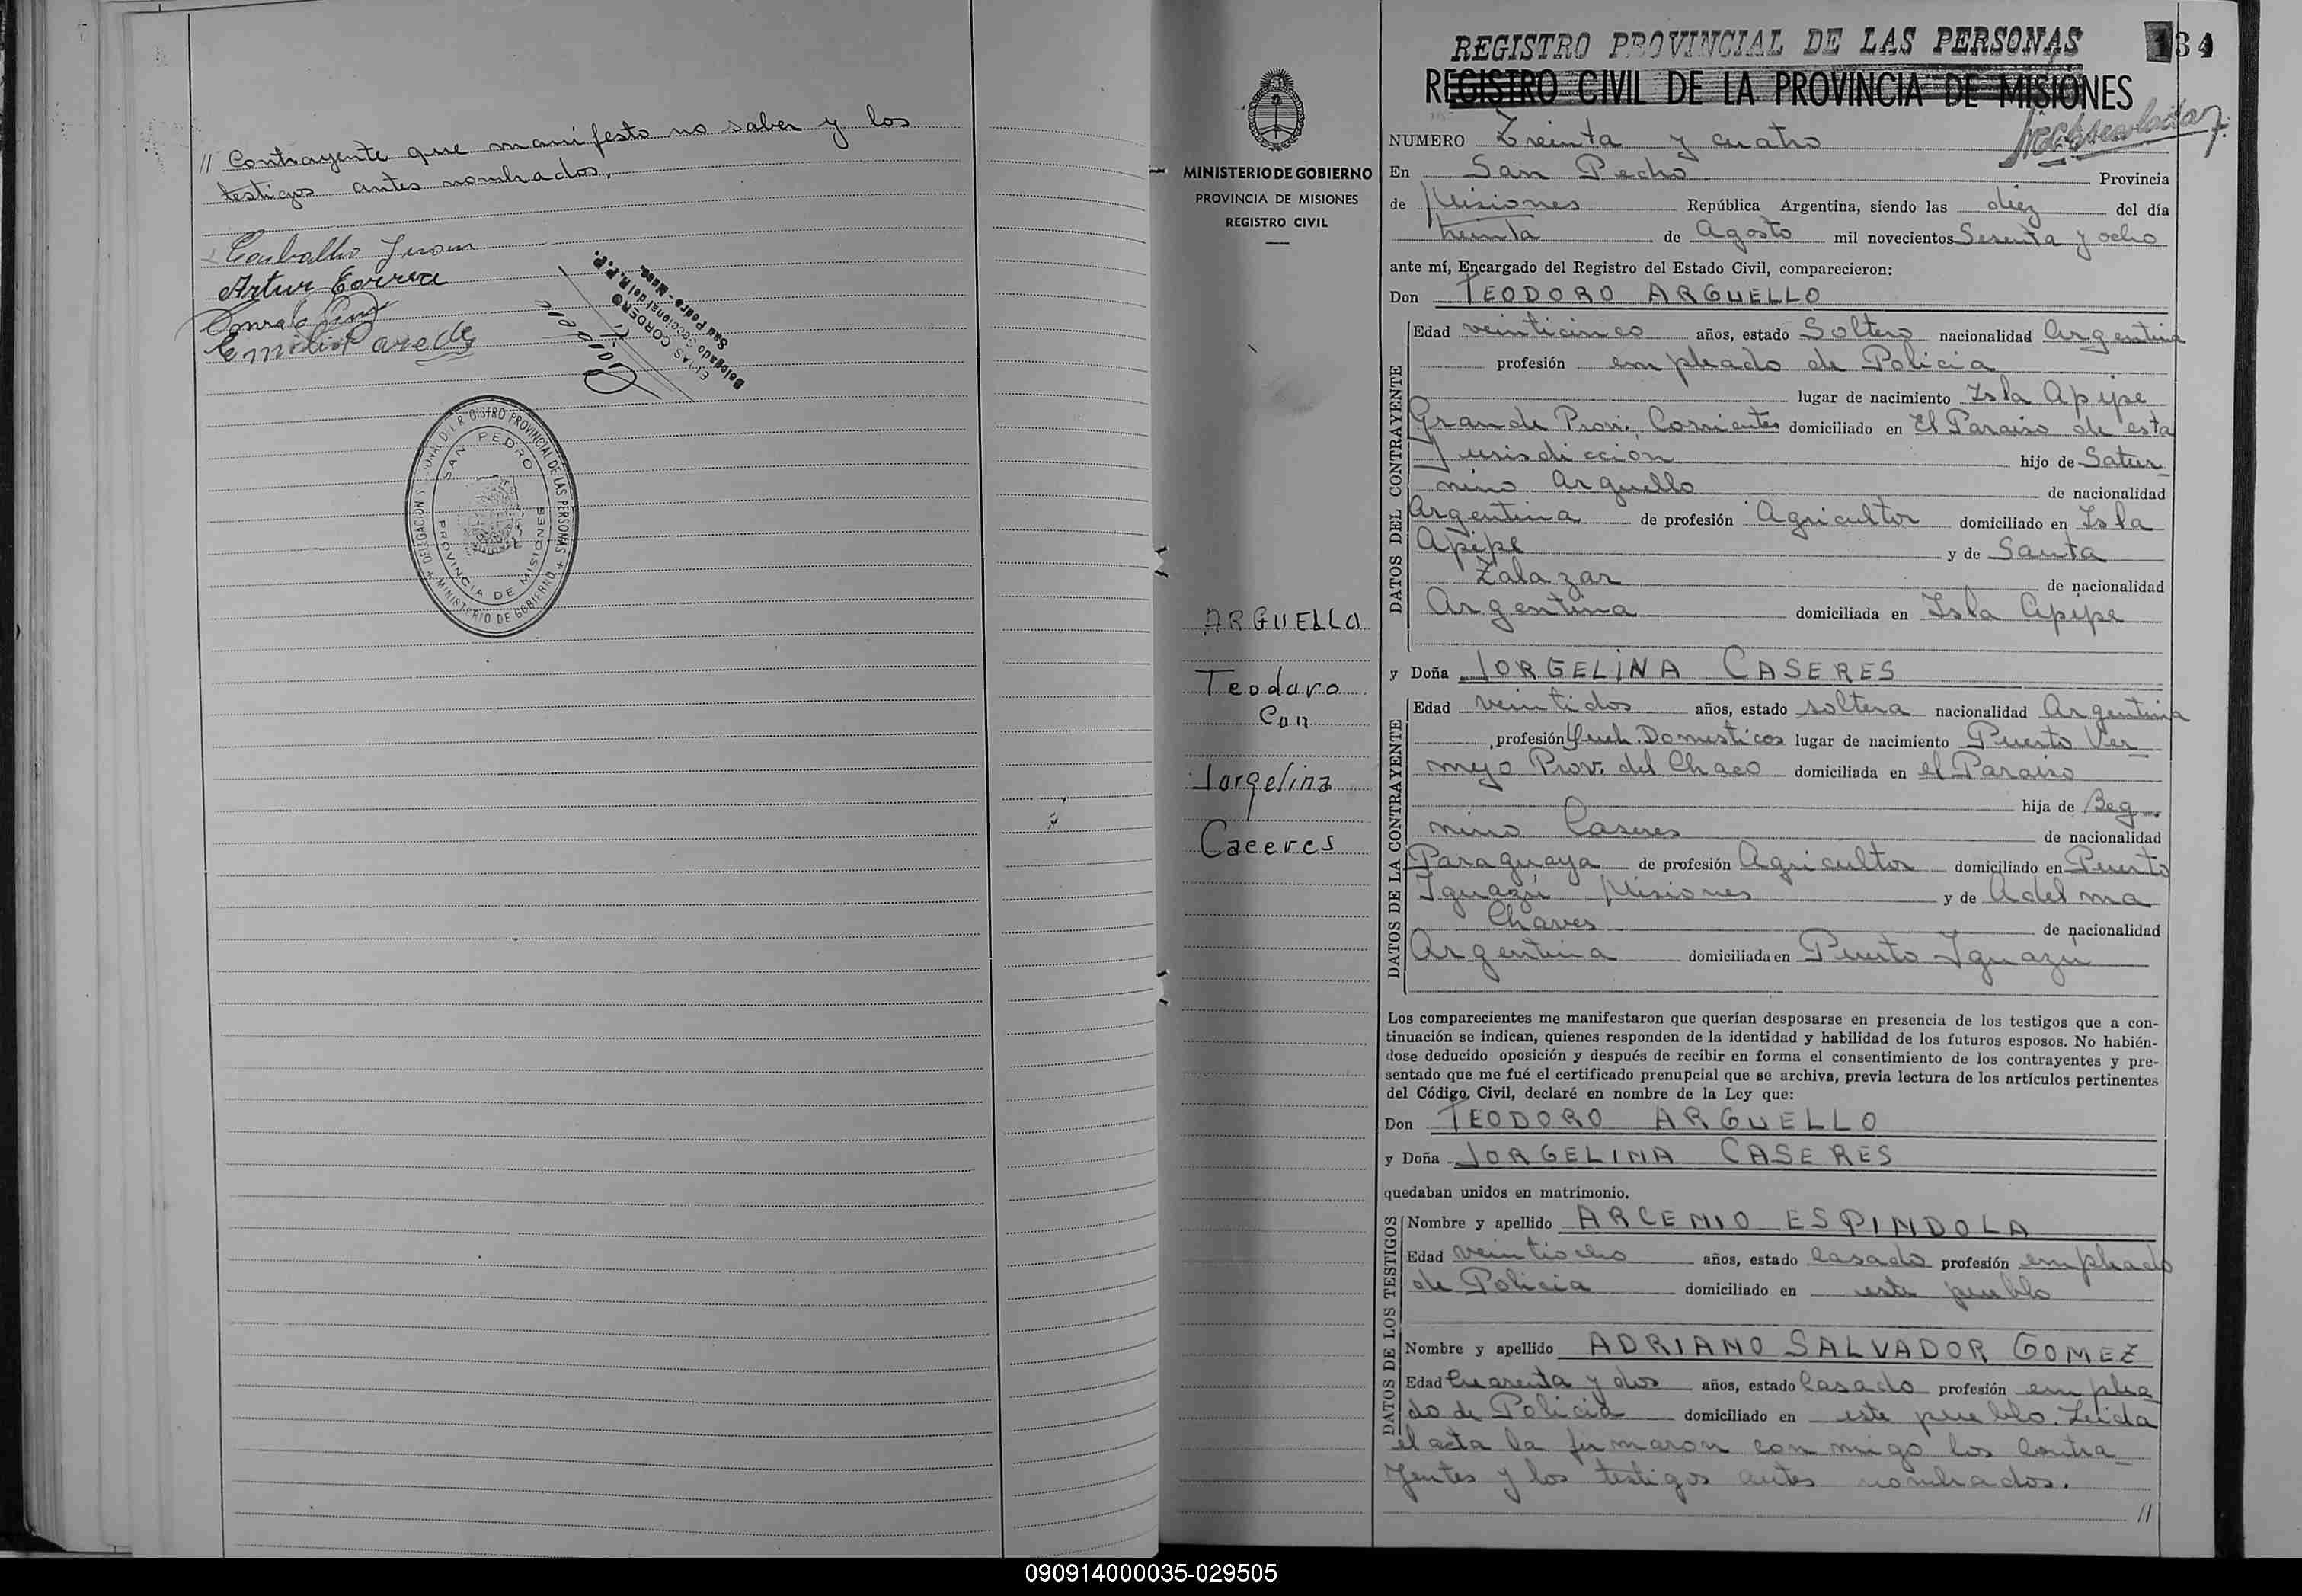 // Contrayente que manifesto no saber y los
testigos antes nombrados.
Carballo Juan
Artur Correa
Emilio Paredes
ELIAS CORDERO
Delegado Seccional del R.P.P.
San Pedro - Mnes.
REGISTRO PROVINCIAL DE LAS PERSONAS
MINISTERIO DE GOBIERNO
SAN PEDRO
PROVINCIA DE MISIONES
MINISTERIO DE GOBIERNO
PROVINCIA DE MISIONES
REGISTRO CIVIL
ARGUELLO
Teodoro
Con
Jorgelina
Caceres
REGISTRO PROVINCIAL DE LAS PERSONAS
134
REGISTRO CIVIL DE LA PROVINCIA DE MISIONES
NUMERO Treinta y cuatro
En San Pedro Provincia
de Misiones República Argentina, siendo las diez del día
treinta de Agosto mil novecientos Sesenta y ocho
ante mí, Encargado del Registro del Estado Civil, comparecieron:
Don TEODORO ARGUELLO
DATOS DEL CONTRAYENTE
Edad veinticinco años, estado Soltero nacionalidad Argentina
profesión empleado de Policia
lugar de nacimiento Isla Apipe
Grande Prov. Corrientes domiciliado en El Paraiso de esta
Jurisdiccion hijo de Satur-
nino Arguello de nacionalidad
Argentina de profesión Agricultor domiciliado en Isla
Apipe y de Santa
Zalazar de nacionalidad
Argentina domiciliada en Isla Apipe
y Doña JORGELINA CASERES
DATOS DE LA CONTRAYENTE
Edad veintidos años, estado soltera nacionalidad Argentina
profesión Queh. Domesticos lugar de nacimiento Puerto Ver
mejo Prov. del Chaco domiciliada en el Paraiso
hija de Beg-
nino Caseres de nacionalidad
Paraguaya de profesión Agricultor domiciliado en Puerto
Iguazú Misiones y de Adelma
Chaves de nacionalidad
Argentina domiciliada en Puerto Iguazu
Los comparecientes me manifestaron que querían desposarse en presencia de los testigos que a con-
tinuación se indican, quienes responden de la identidad y habilidad de los futuros esposos. No habién-
dose deducido oposición y después de recibir en forma el consentimiento de los contrayentes y pre-
sentado que me fué el certificado prenupcial que se archiva, previa lectura de los artículos pertinentes
del Código Civil, declaré en nombre de la Ley que:
Don TEODORO ARGUELLO
y Doña JORGELINA CASERES
quedaban unidos en matrimonio.
DATOS DE LOS TESTIGOS
Nombre y apellido ARCENIO ESPINDOLA
Edad veintiocho años, estado casado profesión empleado
de Policia domiciliado en este pueblo
Nombre y apellido ADRIANO SALVADOR GOMEZ
Edad Cuarenta y dos años, estado Casado profesión emplea
do de Policia domiciliado en este pueblo. Leida
el acta la firmaron con migo los contra-
yentes y los testigos antes nombrados.
//
090914000035-029505